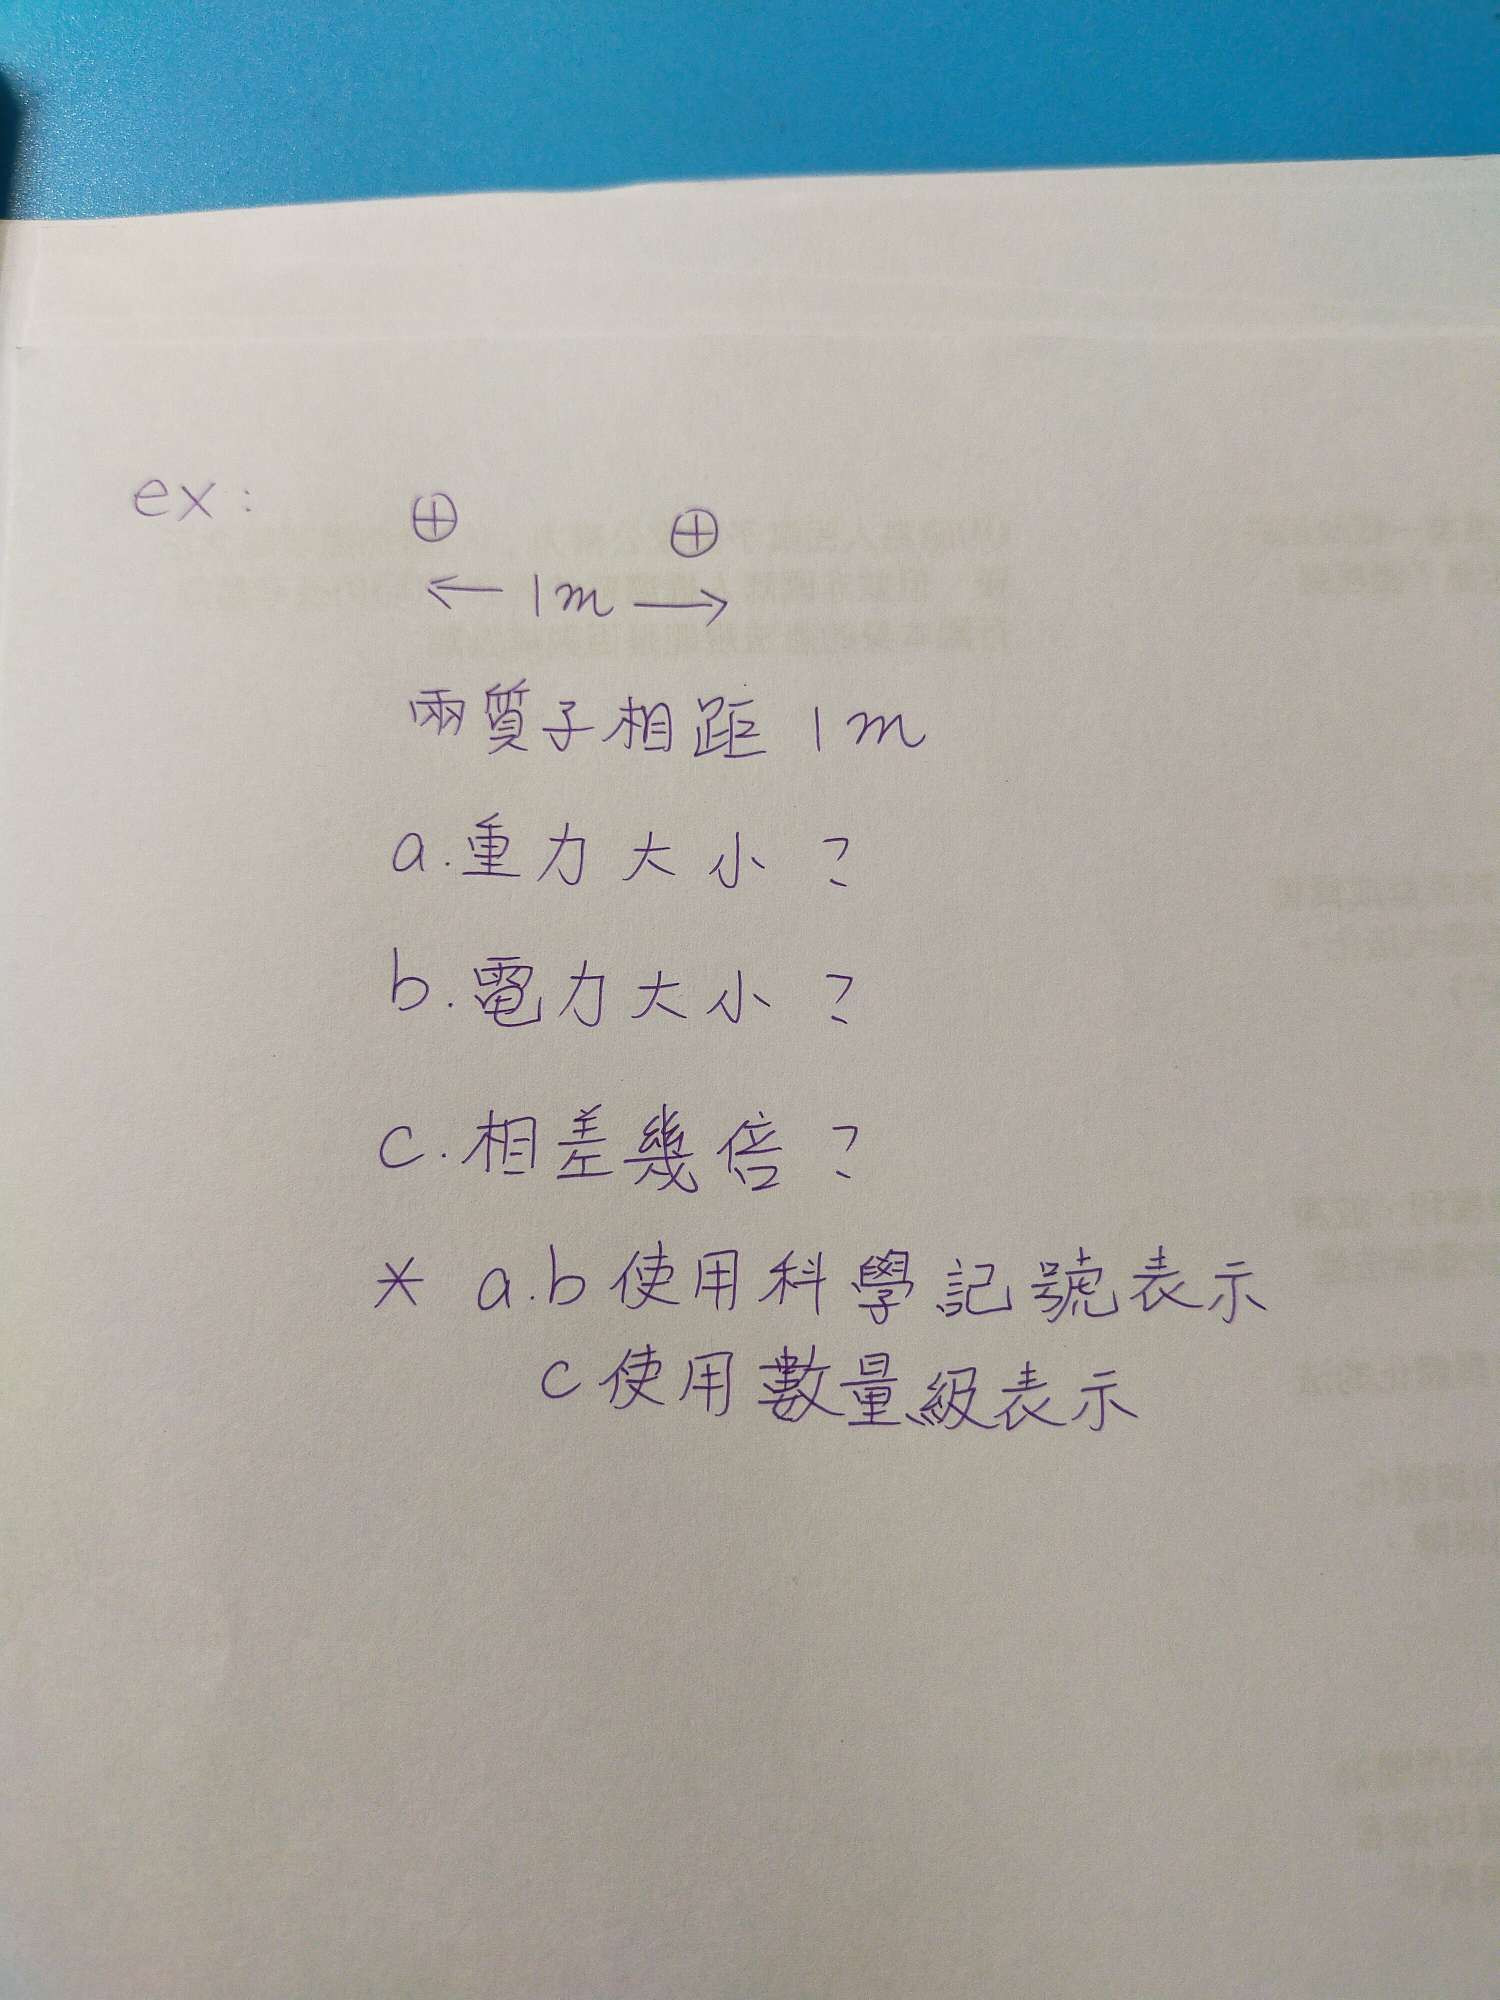 ex: ⊕ ⊕
← 1m →
兩質子相距 1m
a.重力大小?
b.電力大小?
c.相差幾倍?
* a.b使用科學記號表示
c使用數量級表示